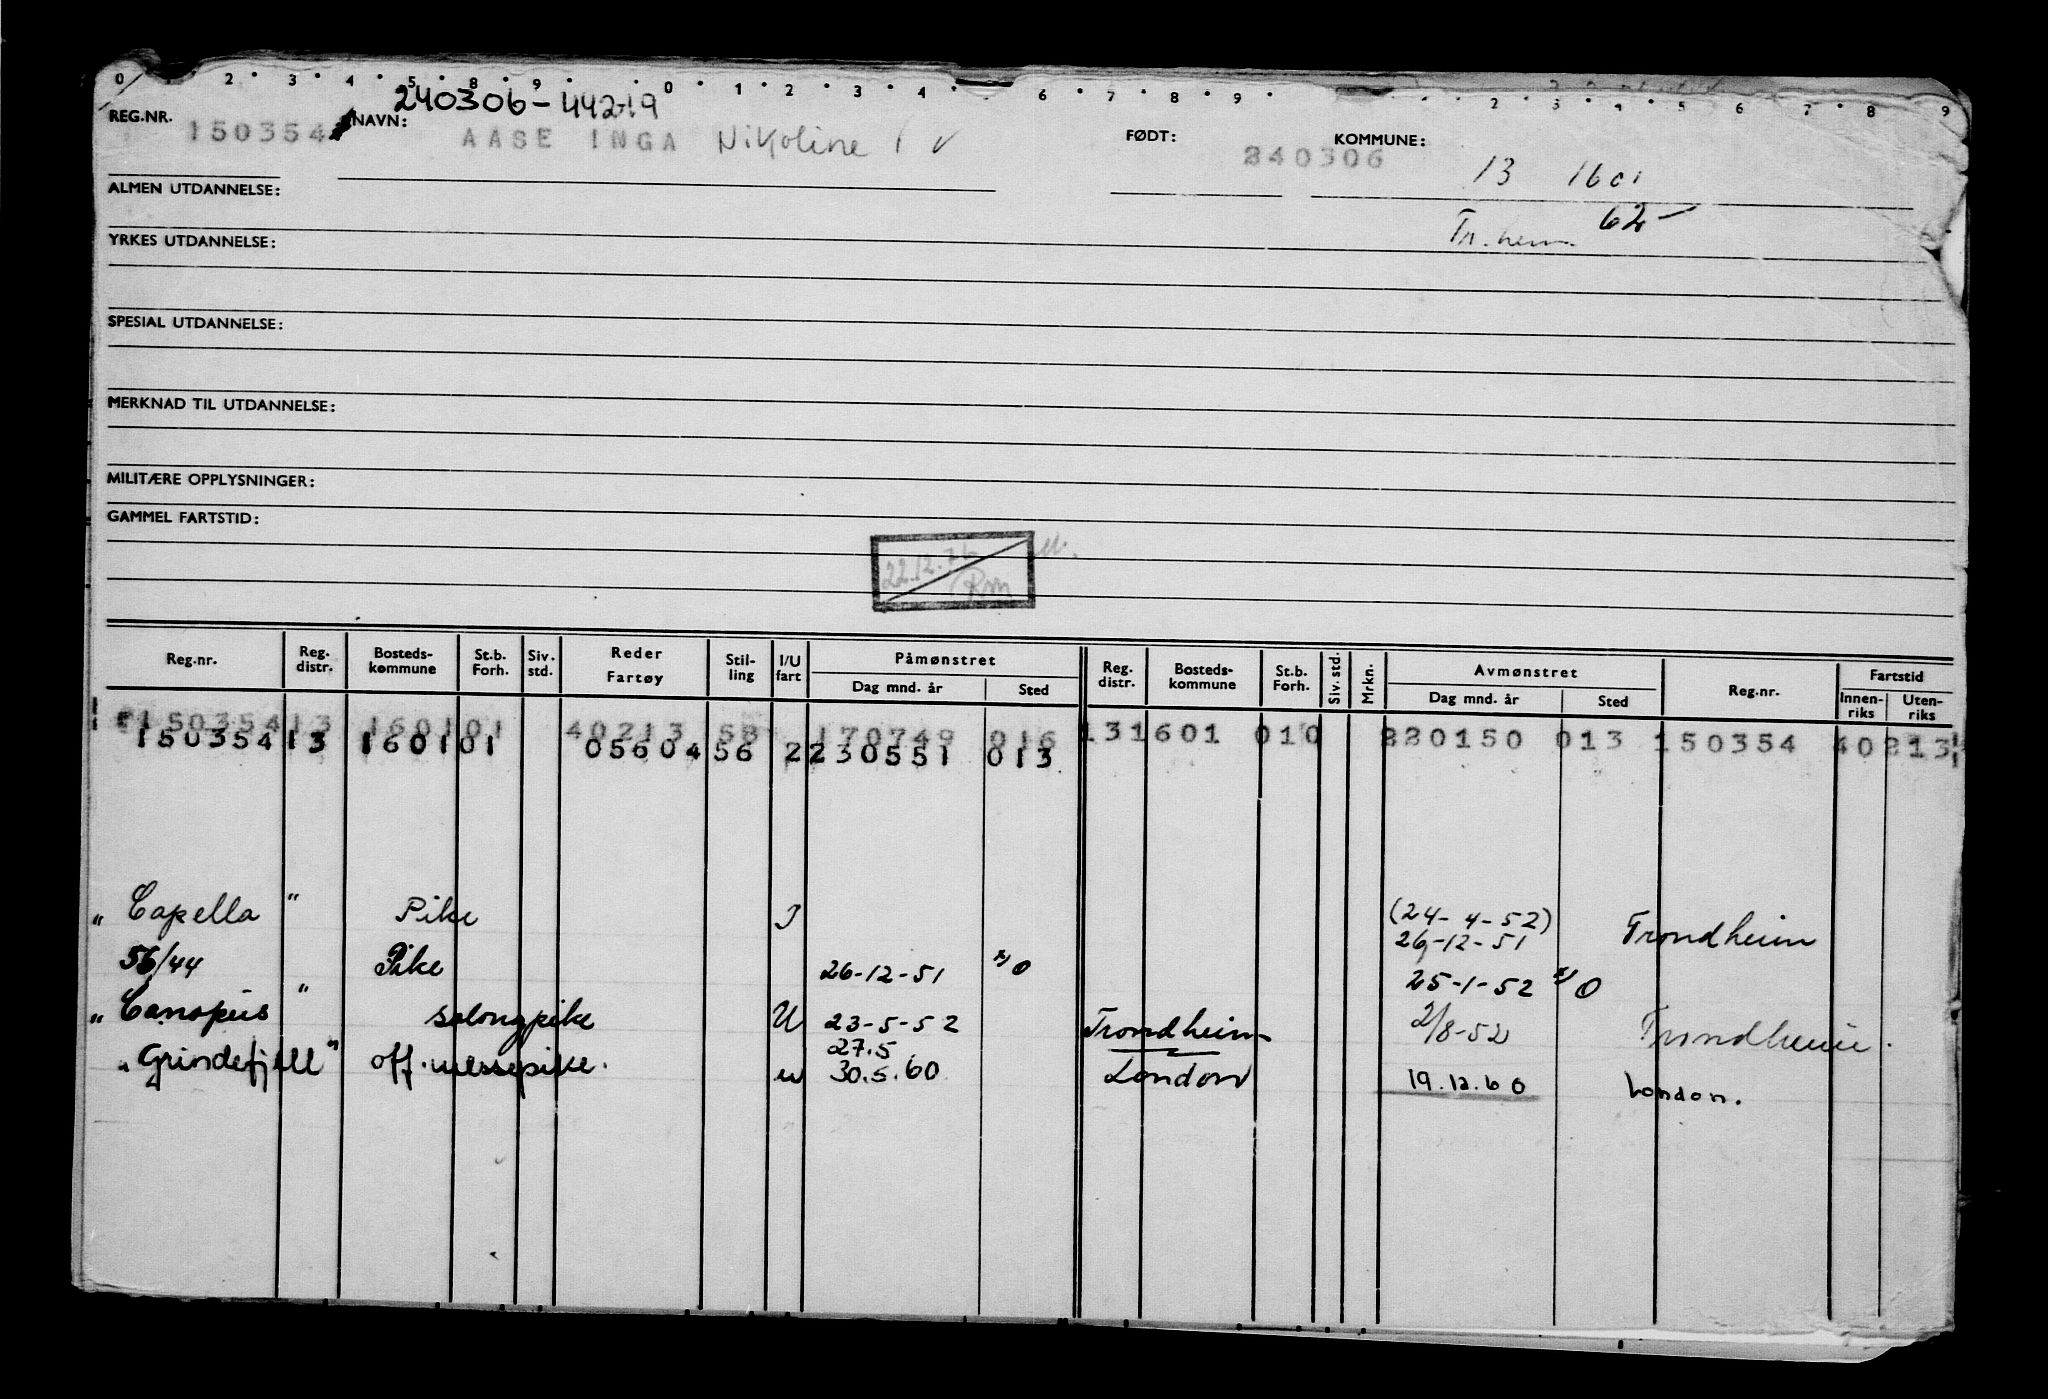 0 2 3 4 5 8 9 0 1 2 3 4 6 7 8 9 2 3 4 5 6 7 8 9
240306-44219
REG.NR. 150354 NAVN: AASE INGA Nikoline FØDT: 240306 KOMMUNE: 13 1601
ALMEN UTDANNELSE:
62-
Tr.heim.
YRKES UTDANNELSE:
SPESIAL UTDANNELSE:
MERKNAD TIL UTDANNELSE:
MILITÆRE OPPLYSNINGER:
GAMMEL FARTSTID:
22.12.76
Rm
Reg.nr. Reg. distr. Bosteds- kommune St.b. Forh. Siv. std. Reder Fartøy Stil- ling I/U fart Påmønstret Dag mnd. år Sted Reg. distr. Bosteds- kommune St.b. Forh. Siv. std. Mrkn. Avmønstret Dag mnd. år Sted Reg.nr. Fartstid Innen- riks Uten- riks
150354 13 160101 40213 58 170749 016 13 1601 010 220150 013 150354 40213
150354 13 160101 05604 56 2 230551 013
"Capella" Pike I (24-4-52)
26-12-51 Trondheim
56/44 Pike 26-12-51 x) O 25-1-52 x) O
"Canopus" salongpike U 23-5-52 Trondheim 2/8-52 Trondheim.
27.5
"Grindefjell" off.messepike. u 30.5.60 London 19.12.60 London.